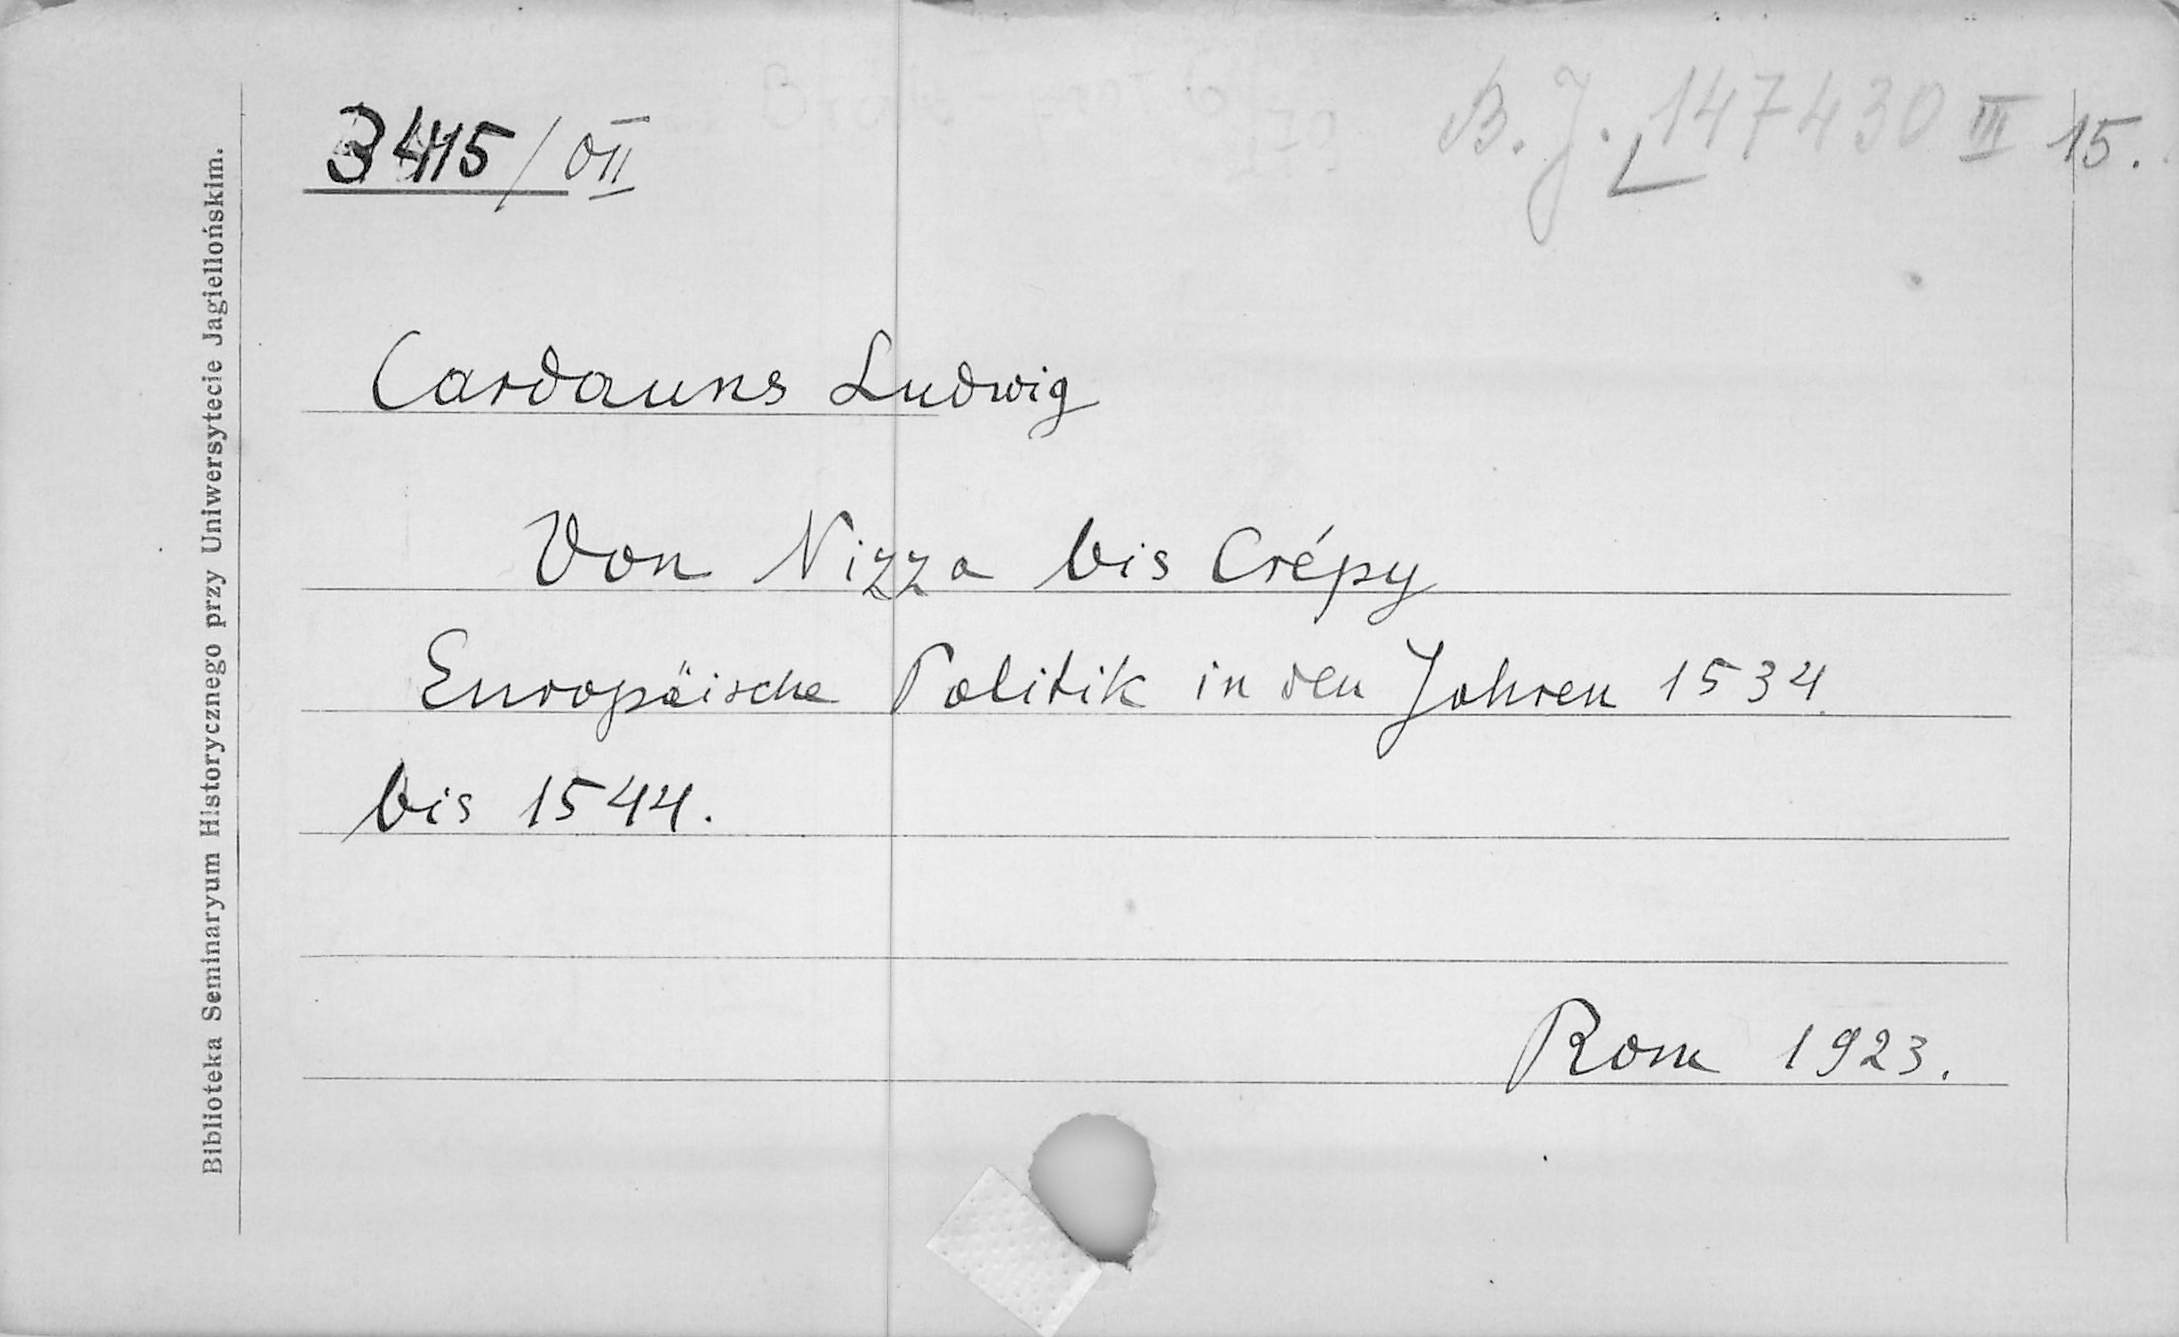 3415/OII
B. J. 147430 III 15.
Cardauns Ludwig
Von Nizza bis Crépy
Europäische Politik in den Jahren 1534
bis 1544.
Rom 1923.
Biblioteka Seminaryum Historycznego przy Uniwersytecie Jagiellońskim.